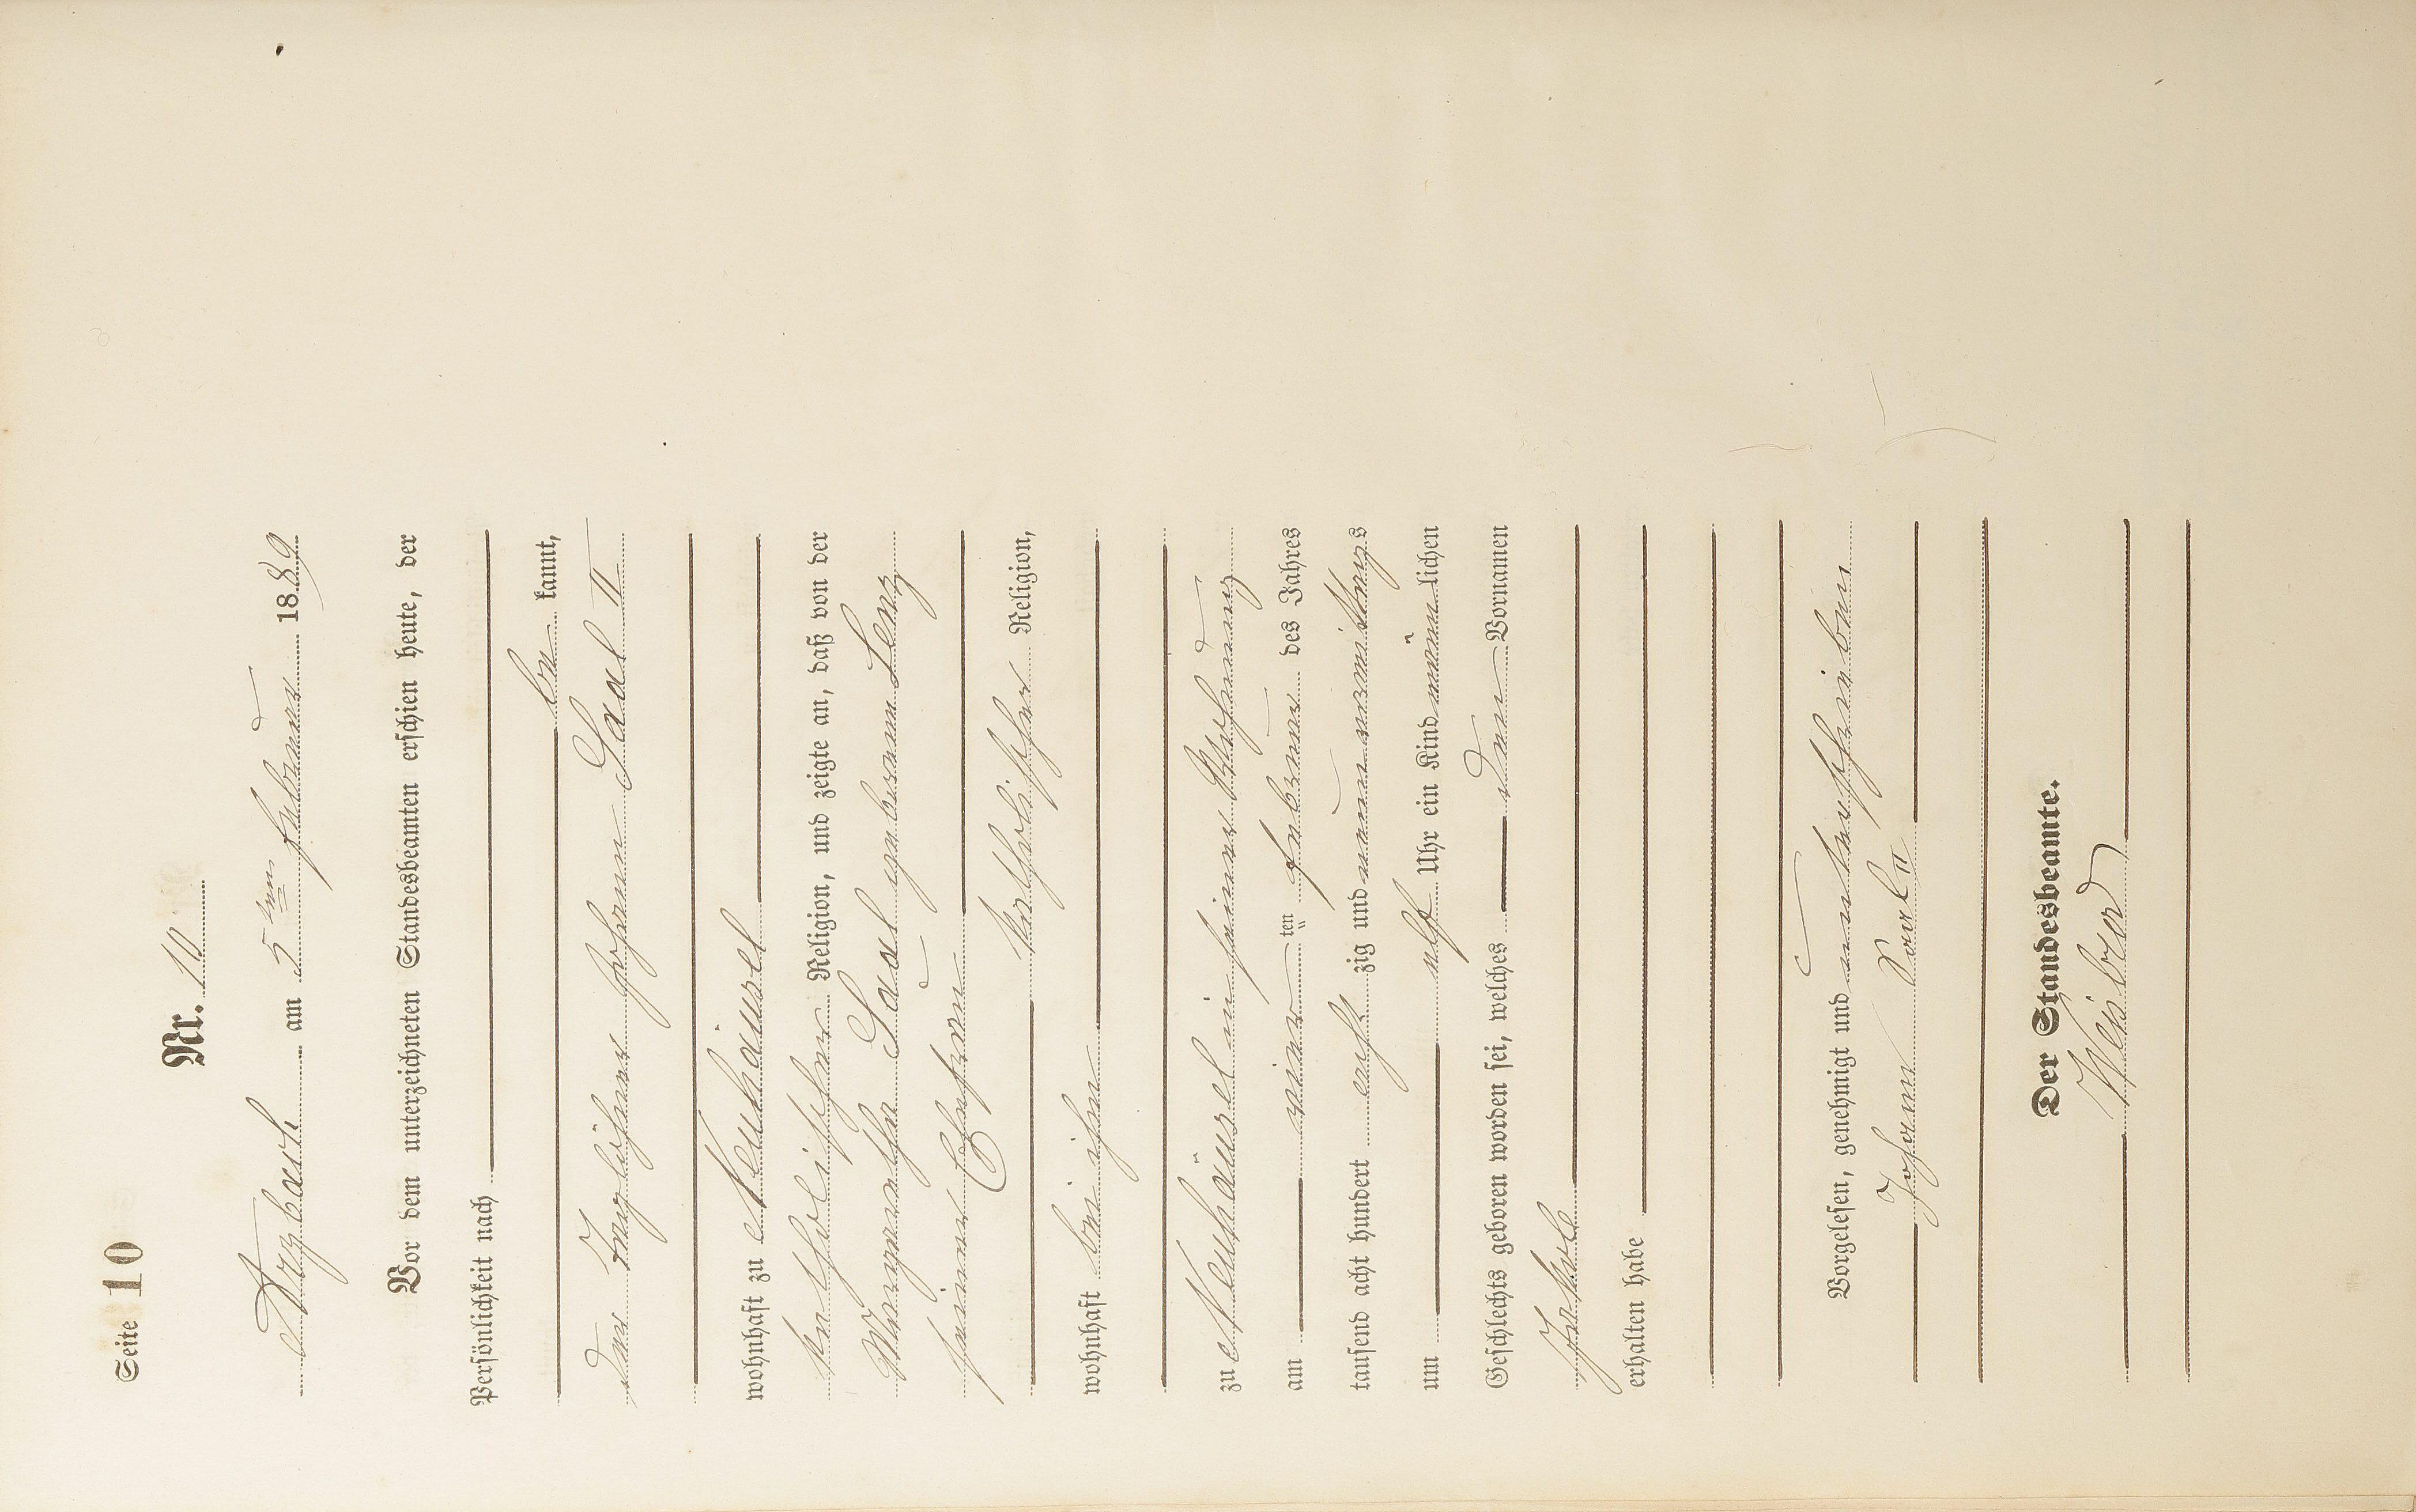 Seite 10
Nr. 10
Arzbach am 5ten Februar 1889
Vor dem unterzeichneten Standesbeamten erschien heute, der
Persönlichkeit nach
be kannt,
der Taglöhner Johann Saal II
wohnhaft zu Neuhäusel
katholischer Religion, und zeigte an, daß von der
Margaretha Saal geborenen Lenz
seiner Ehefrau
katholischer Religion,
wohnhaft bei ihm
zu Neuhäusel in seiner Wohnung
am vier ten Februar des Jahres
tausend acht hundert acht zig und neun vormittags
um elf Uhr ein Kind männ lichen
Geschlechts geboren worden sei, welches den Vornamen
Jakob
erhalten habe
Vorgelesen, genehmigt und unterschrieben
Johann Saal II
Der Standesbeamte.